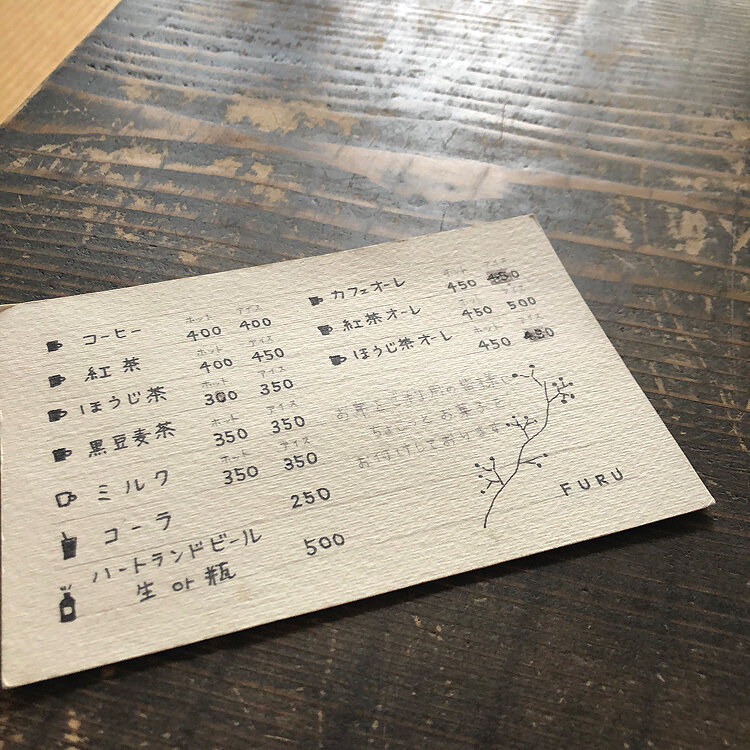 コーヒー ホット 400 アイス 400
紅茶 ホット 400 アイス 450
ほうじ茶 ホット 300 アイス 350
黒豆麦茶 ホット 350 アイス 350
ミルク ホット 350 アイス 350
コーラ 250
ハートランドビール 500
生 or 瓶
カフェオーレ ホット 450 アイス 450
紅茶オーレ ホット 450 アイス 500
ほうじ茶オーレ ホット 450
お茶をご利用の皆様に
ちょこっとお菓子を
お付けしております
FURU